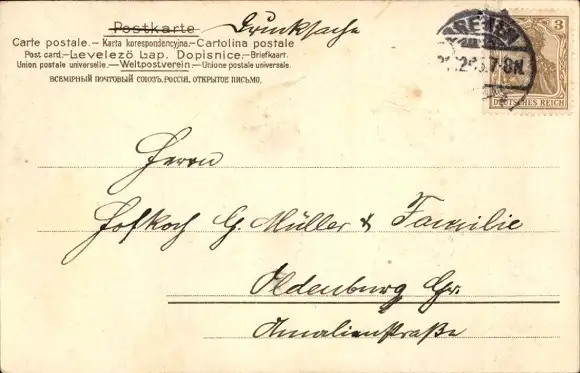 Postkarte Drucksache
Carte postale. – Karta korespondencyjna. – Cartolina postale
Post card. – Levelező Lap. Dopisnice. – Briefkaart.
Union postale universelle. – Weltpostverein. – Unione postale universale.
ВСЕМІРНЫЙ ПОЧТОВЫЙ СОЮЗЪ. РОССІЯ. ОТКРЫТОЕ ПИСЬМО.
BREMEN
7-8N.
3
DEUTSCHES REICH
Herrn
Hofkoch G. Müller & Familie
Oldenburg Gr.
Amalienstraße